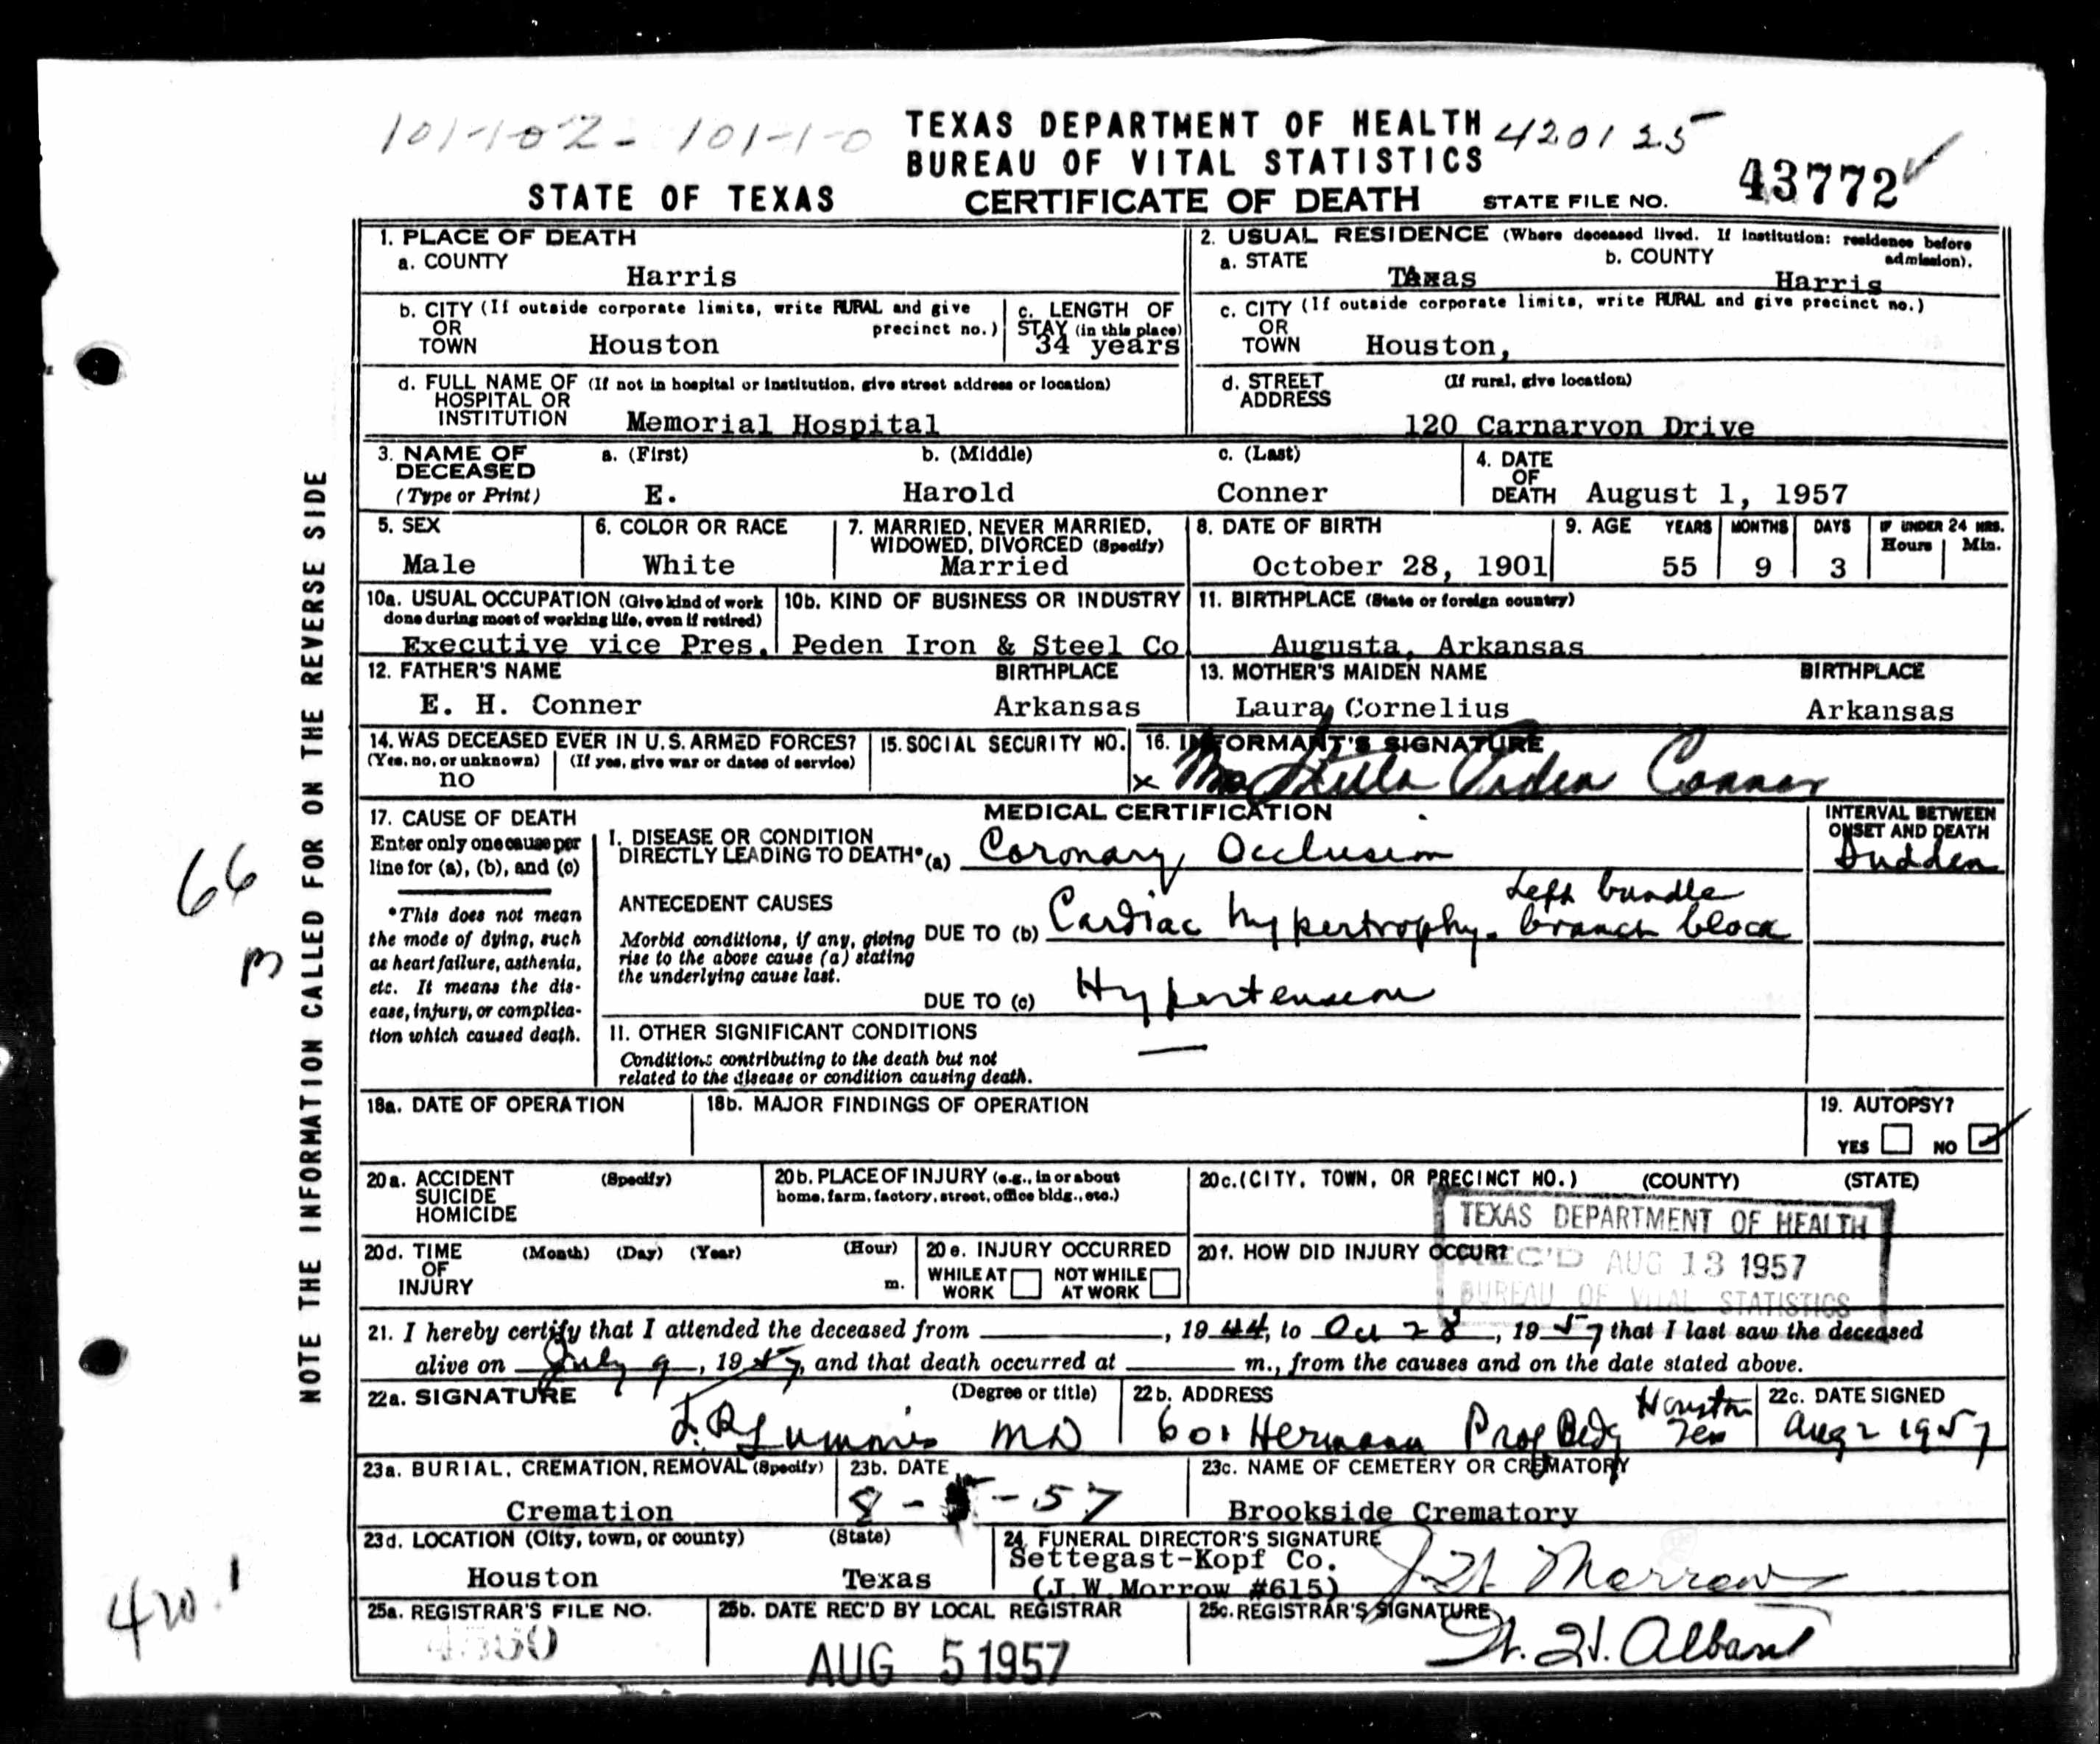 101-102 - 101-1-0
TEXAS DEPARTMENT OF HEALTH 420125
BUREAU OF VITAL STATISTICS
STATE OF TEXAS CERTIFICATE OF DEATH STATE FILE NO. 43772
1. PLACE OF DEATH
a. COUNTY Harris
2. USUAL RESIDENCE (Where deceased lived. If institution: residence before admission).
a. STATE Texas b. COUNTY Harris
b. CITY (If outside corporate limits, write RURAL and give precinct no.)
OR
TOWN Houston
c. LENGTH OF
STAY (in this place)
34 years
c. CITY (If outside corporate limits, write RURAL and give precinct no.)
OR
TOWN Houston,
d. FULL NAME OF (If not in hospital or institution, give street address or location)
HOSPITAL OR
INSTITUTION Memorial Hospital
d. STREET (If rural, give location)
ADDRESS
120 Carnarvon Drive
3. NAME OF DECEASED
(Type or Print)
a. (First) b. (Middle) c. (Last)
E. Harold Conner
4. DATE
OF
DEATH August 1, 1957
5. SEX
Male
6. COLOR OR RACE
White
7. MARRIED, NEVER MARRIED,
WIDOWED, DIVORCED (Specify)
Married
8. DATE OF BIRTH
October 28, 1901
9. AGE YEARS MONTHS DAYS IF UNDER 24 HRS.
Hours Min.
55 9 3
10a. USUAL OCCUPATION (Give kind of work
done during most of working life, even if retired)
Executive vice Pres.
10b. KIND OF BUSINESS OR INDUSTRY
Peden Iron & Steel Co
11. BIRTHPLACE (State or foreign country)
Augusta, Arkansas
12. FATHER'S NAME BIRTHPLACE
E. H. Conner Arkansas
13. MOTHER'S MAIDEN NAME BIRTHPLACE
Laura Cornelius Arkansas
14. WAS DECEASED EVER IN U.S. ARMED FORCES?
(Yes, no, or unknown) (If yes, give war or dates of service)
no
15. SOCIAL SECURITY NO.
16. INFORMANT'S SIGNATURE
x Mrs Stella Peden Conner
17. CAUSE OF DEATH
Enter only one cause per
line for (a), (b), and (c)
*This does not mean
the mode of dying, such
as heart failure, asthenia,
etc. It means the dis-
ease, injury, or complica-
tion which caused death.
MEDICAL CERTIFICATION
INTERVAL BETWEEN
ONSET AND DEATH
I. DISEASE OR CONDITION
DIRECTLY LEADING TO DEATH* (a) Coronary Occlusion Sudden
ANTECEDENT CAUSES
Morbid conditions, if any, giving
rise to the above cause (a) stating
the underlying cause last.
DUE TO (b) Cardiac hypertrophy. Left bundle
branch block
DUE TO (c) Hypertension
II. OTHER SIGNIFICANT CONDITIONS
Conditions contributing to the death but not
related to the disease or condition causing death.
18a. DATE OF OPERATION
18b. MAJOR FINDINGS OF OPERATION
19. AUTOPSY?
YES NO
20a. ACCIDENT (Specify)
SUICIDE
HOMICIDE
20b. PLACE OF INJURY (e.g., in or about
home, farm, factory, street, office bldg., etc.)
20c. (CITY, TOWN, OR PRECINCT NO.) (COUNTY) (STATE)
20d. TIME (Month) (Day) (Year) (Hour)
OF
INJURY m.
20e. INJURY OCCURRED
WHILE AT WORK NOT WHILE AT WORK
20f. HOW DID INJURY OCCUR?
TEXAS DEPARTMENT OF HEALTH
REC'D AUG 13 1957
BUREAU OF VITAL STATISTICS
21. I hereby certify that I attended the deceased from , 1944, to Oct 28, 1957 that I last saw the deceased
alive on July 9, 1957, and that death occurred at m., from the causes and on the date stated above.
22a. SIGNATURE (Degree or title)
Lummis MD
22b. ADDRESS
601 Hermann Prof Bldg Houston
Tex
22c. DATE SIGNED
Aug 2 1957
23a. BURIAL, CREMATION, REMOVAL (Specify)
Cremation
23b. DATE
8- -57
23c. NAME OF CEMETERY OR CREMATORY
Brookside Crematory
23d. LOCATION (City, town, or county) (State)
Houston Texas
24. FUNERAL DIRECTOR'S SIGNATURE
Settegast-Kopf Co.
(J.W. Morrow #615) J.W. Morrow
25a. REGISTRAR'S FILE NO.
25b. DATE REC'D BY LOCAL REGISTRAR
AUG 5 1957
25c. REGISTRAR'S SIGNATURE
NOTE THE INFORMATION CALLED FOR ON THE REVERSE SIDE
66
m
420.1